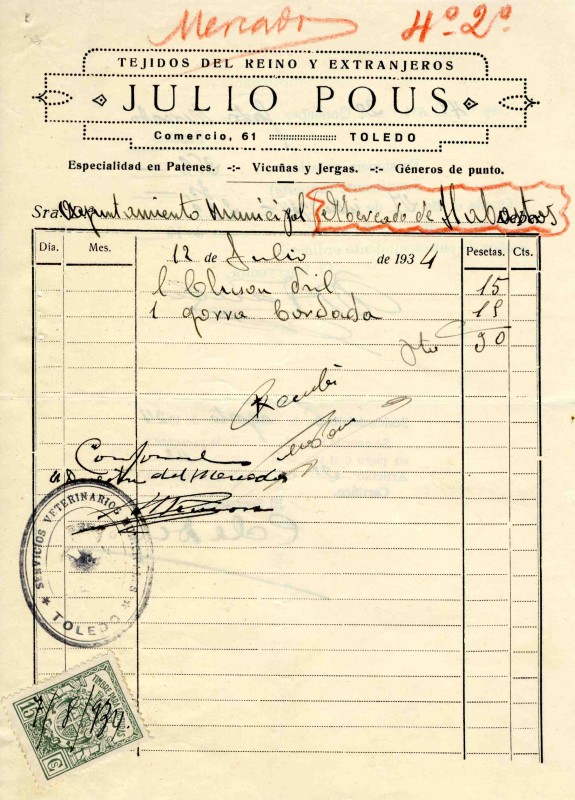 Mercado 4º 2º
TEJIDOS DEL REINO Y EXTRANJEROS
JULIO POUS
Comercio, 61 TOLEDO
Especialidad en Patenes. -:- Vicuñas y Jergas. -:- Géneros de punto.
Sr. Ayuntamiento Municipal Mercado de Abastos
Día. Mes. 12 de Julio de 1934 Pesetas. Cts.
1 dril 15
1 gorra bordada 15
30
Recibí
Conforme
del Mercado
SERVICIOS VETERINARIOS
TOLEDO
7/8/934.